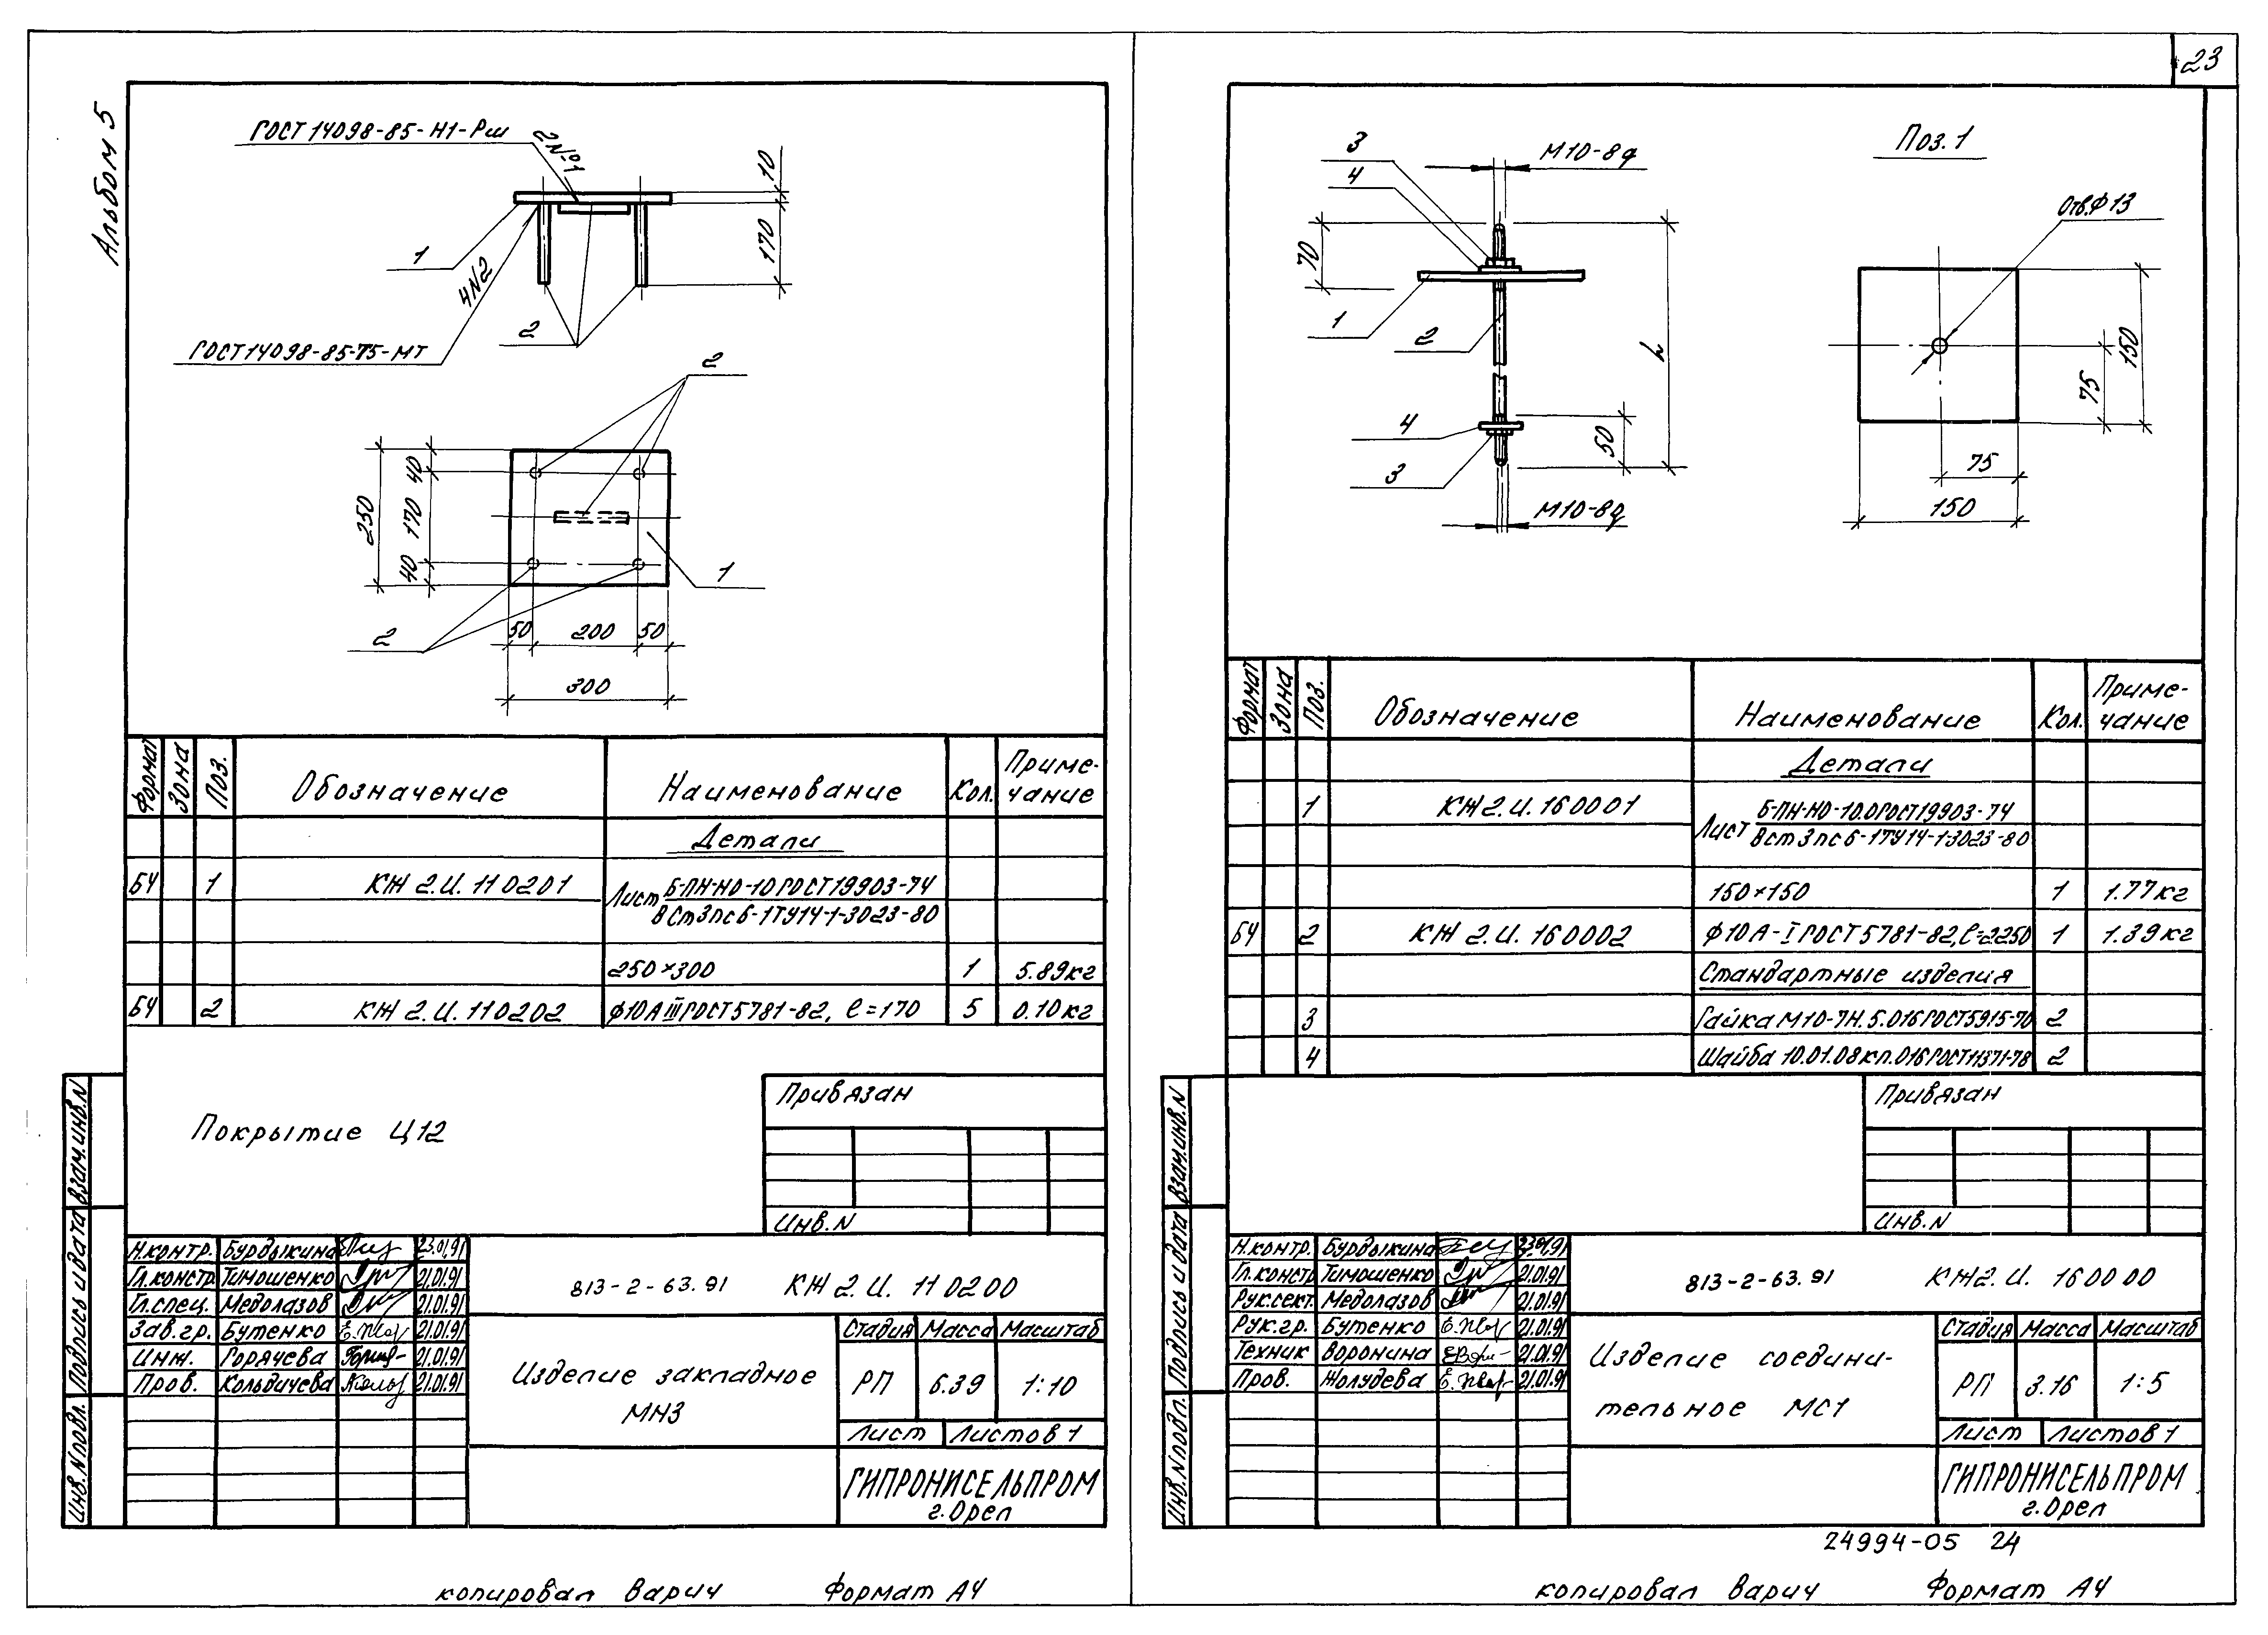 23
Альбом 5
ГОСТ 14098-85-Н1-Рш
2№1
10
170
1
4№2
2
ГОСТ 14098-85-Т5-МТ
2
250
40
170
40
1
2
50 200 50
300
Формат Зона Поз. Обозначение Наименование Кол. Приме-
чание
Детали
БЧ 1 КЖ 2.И. 110201 Лист Б-ПН-НО-10 ГОСТ 19903-74
ВСт3пс6-1ТУ14-1-3023-80
250×300 1 5.89кг
БЧ 2 КЖ 2.И. 110202 ф10АIII ГОСТ 5781-82, ℓ=170 5 0.10кг
Покрытие Ц12
Привязан
Инв.N
Взам.инв.N
Подпись и дата
Инв.Nподл.
Н.контр. Бурдыкина 23.01.91
Гл.констр Тимошенко 21.01.91
Гл.спец. Медолазов 21.01.91
Зав.гр. Бутенко 21.01.91
Инж. Горячева 21.01.91
Пров. Кольдичева 21.01.91
813-2-63.91 КЖ 2.И. 110200
Изделие закладное
МН3
Стадия Масса Масштаб
РП 6.39 1:10
Лист Листов 1
ГИПРОНИСЕЛЬПРОМ
г.Орел
копировал Варич Формат А4
3
4
М10-8g
70
1
2
L
4
50
3
М10-8g
Поз.1
Отв.ф13
150
75
75
150
Формат Зона Поз. Обозначение Наименование Кол. Приме-
чание
Детали
1 КЖ 2.И. 160001 Лист Б-ПН-НО-10.0 ГОСТ 19903-74
ВСт3пс6-1ТУ14-1-3023-80
150×150 1 1.77кг
БЧ 2 КЖ 2.И. 160002 ф10А-I ГОСТ 5781-82, ℓ=2250 1 1.39кг
Стандартные изделия
3 Гайка М10-7Н.5.016 ГОСТ 5915-70 2
4 Шайба 10.01.08кп.016 ГОСТ 11371-78 2
Привязан
Инв.N
Взам.инв.N
Подпись и дата
Инв.Nподл.
Н.контр. Бурдыкина 23.01.91
Гл.констр Тимошенко 21.01.91
Рук.сект. Медолазов 21.01.91
Рук.гр. Бутенко 21.01.91
Техник Воронина 21.01.91
Пров. Жолудева 21.01.91
813-2-63.91 КЖ2.И. 160000
Изделие соедини-
тельное МС1
Стадия Масса Масштаб
РП 3.16 1:5
Лист Листов 1
ГИПРОНИСЕЛЬПРОМ
г.Орел
24994-05 24
копировал Варич Формат А4